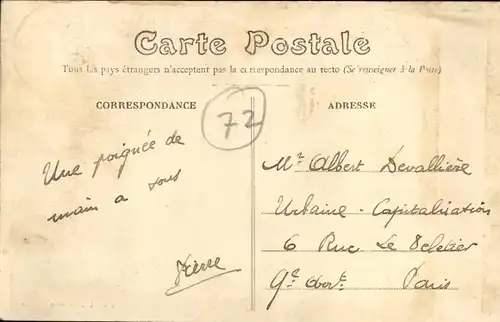 Carte Postale
Tous les pays étrangers n'acceptent pas la correspondance au recto (Se renseigner à la Poste)
CORRESPONDANCE
ADRESSE
72
Une poignée de
main a vous
Pierre
Mr Albert Devallière
Urbaine - Capitalisation
6 Rue Le Peletier
Paris